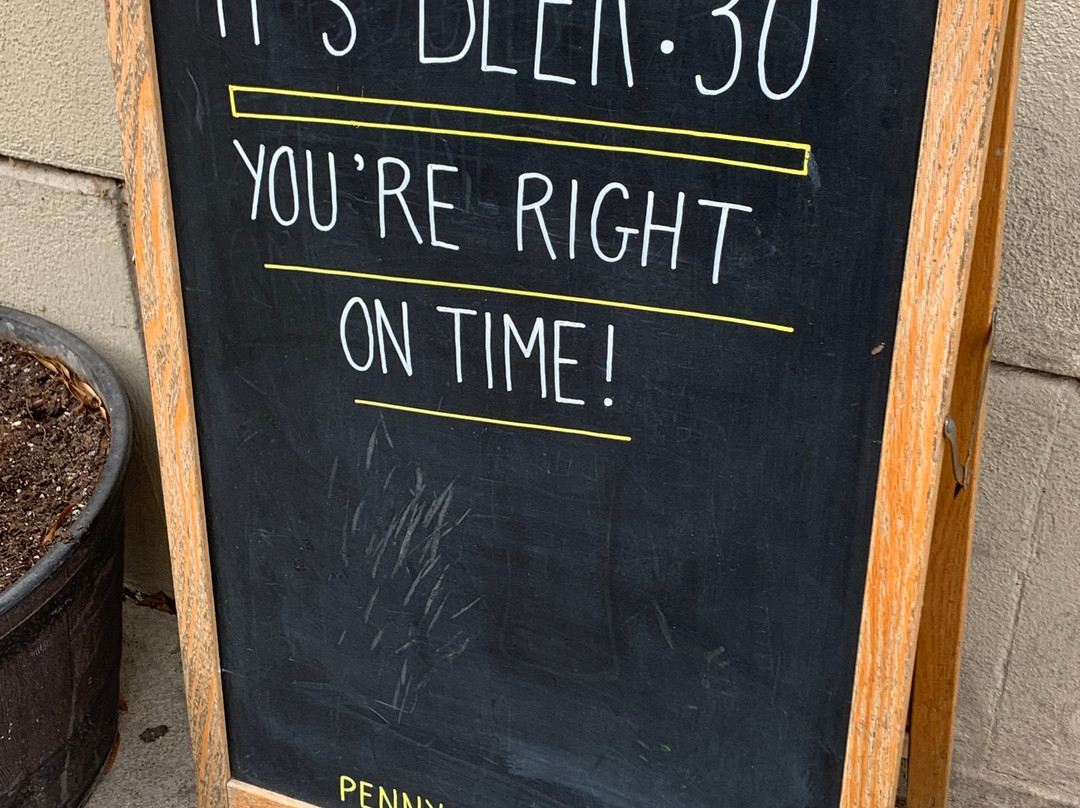 IT'S BEER:30
YOU'RE RIGHT
ON TIME!
PENNY